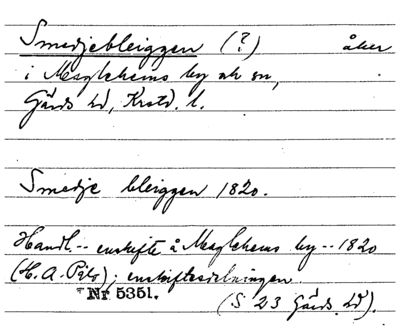 Smedjebleiggen (?) åker
i Maglehems by ok sn,
Gärds hd, Krstd. l.
Smedje bleiggen 1820.
Handl. -- enskifte å Maglehems by -- 1820
(H. A. Påto); enskiftesdelningen.
Nr 5351. (S 23 Gärds hd).